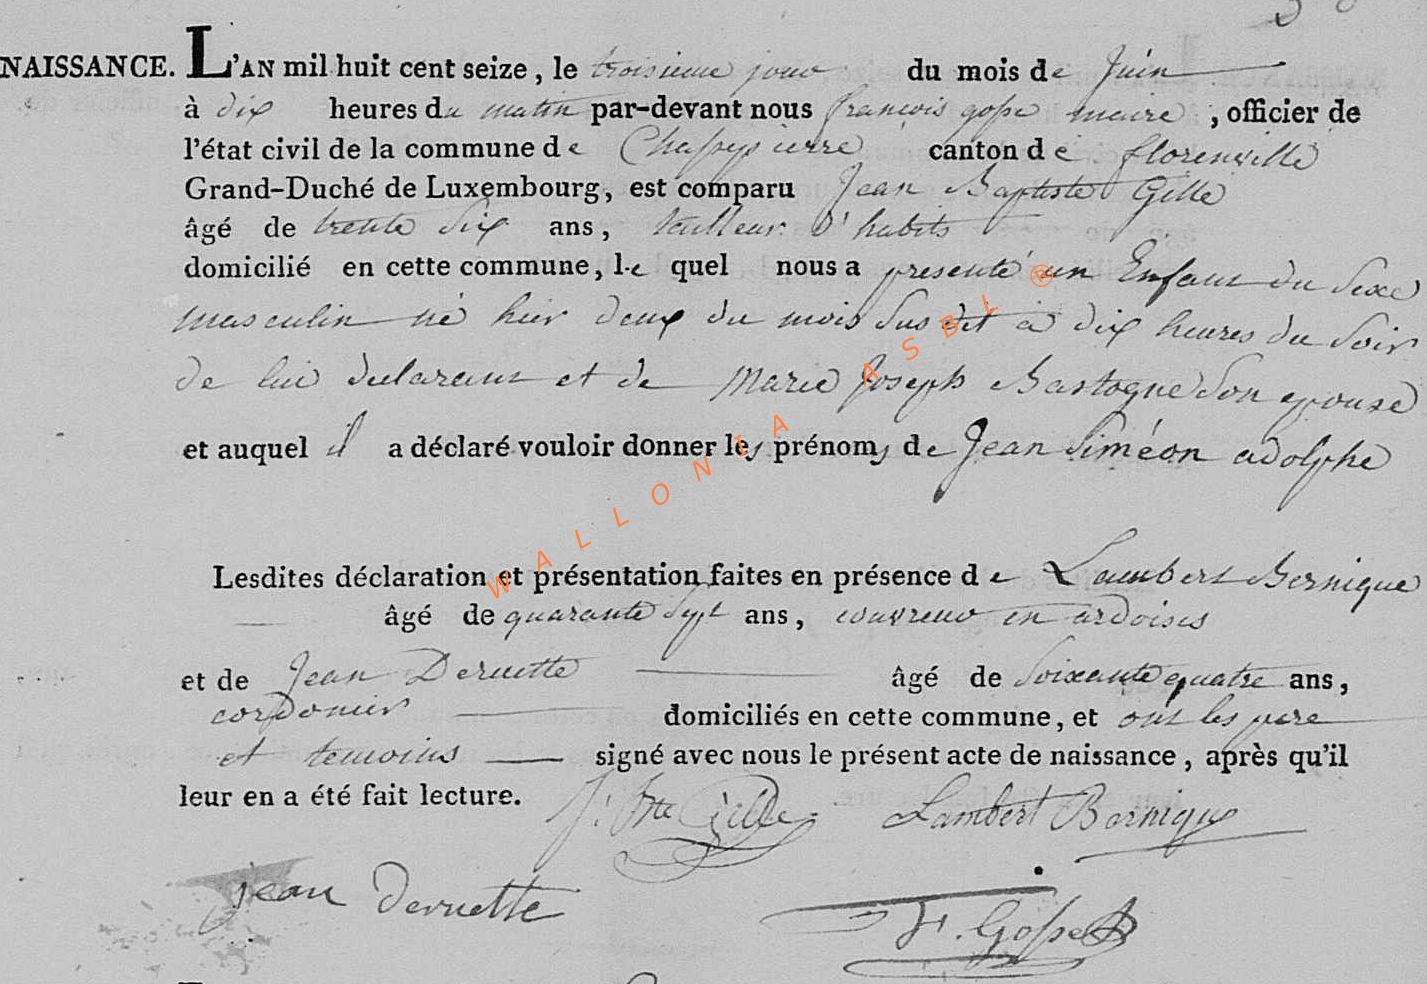 NAISSANCE. L'AN mil huit cent seize, le troisieme jour du mois de Juin
à dix heures du matin par-devant nous françois gosse maire, officier de
l'état civil de la commune de Chassepierre canton de florenville
Grand-Duché de Luxembourg, est comparu Jean Baptiste Gille
âgé de trente six ans, tailleur d'habits
domicilié en cette commune, le quel nous a presenté un Enfant du Sexe
masculin né hier deux du mois Susdit à dix heures du Soir
de lui declarant et de Marie Joseph Bastogne Son epouse
et auquel il a déclaré vouloir donner les prénoms de Jean Siméon adolphe
Lesdites déclaration et présentation faites en présence de Lambert Bernique
âgé de quarante Sept ans, couvreur en ardoises
et de Jean Deruette âgé de Soixante quatre ans,
cordonier domiciliés en cette commune, et ont les pere
et temoins signé avec nous le présent acte de naissance, après qu'il
leur en a été fait lecture. J. Bte Gille Lambert Bornique
jean Deruette F. Gosse
WALLONIA ASBL ®